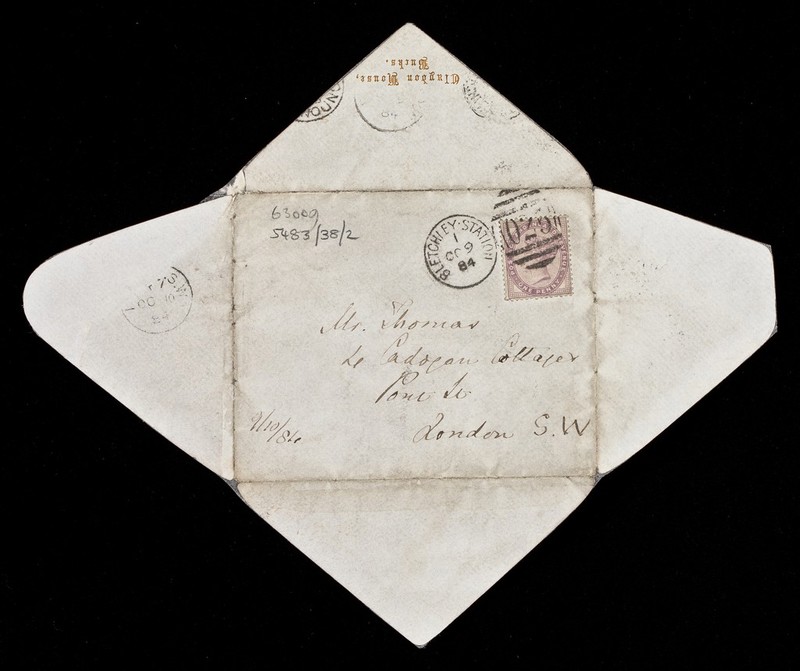 Claydon House,
Bucks.
63009
5483/38/2
BLETCHLEY·STATION
1
OC 9
84
ONE PENNY
Mr. Thomas
4 Cadogan Cottages
Pont St
London S.W
9/10/84
S.W
OC
84
84